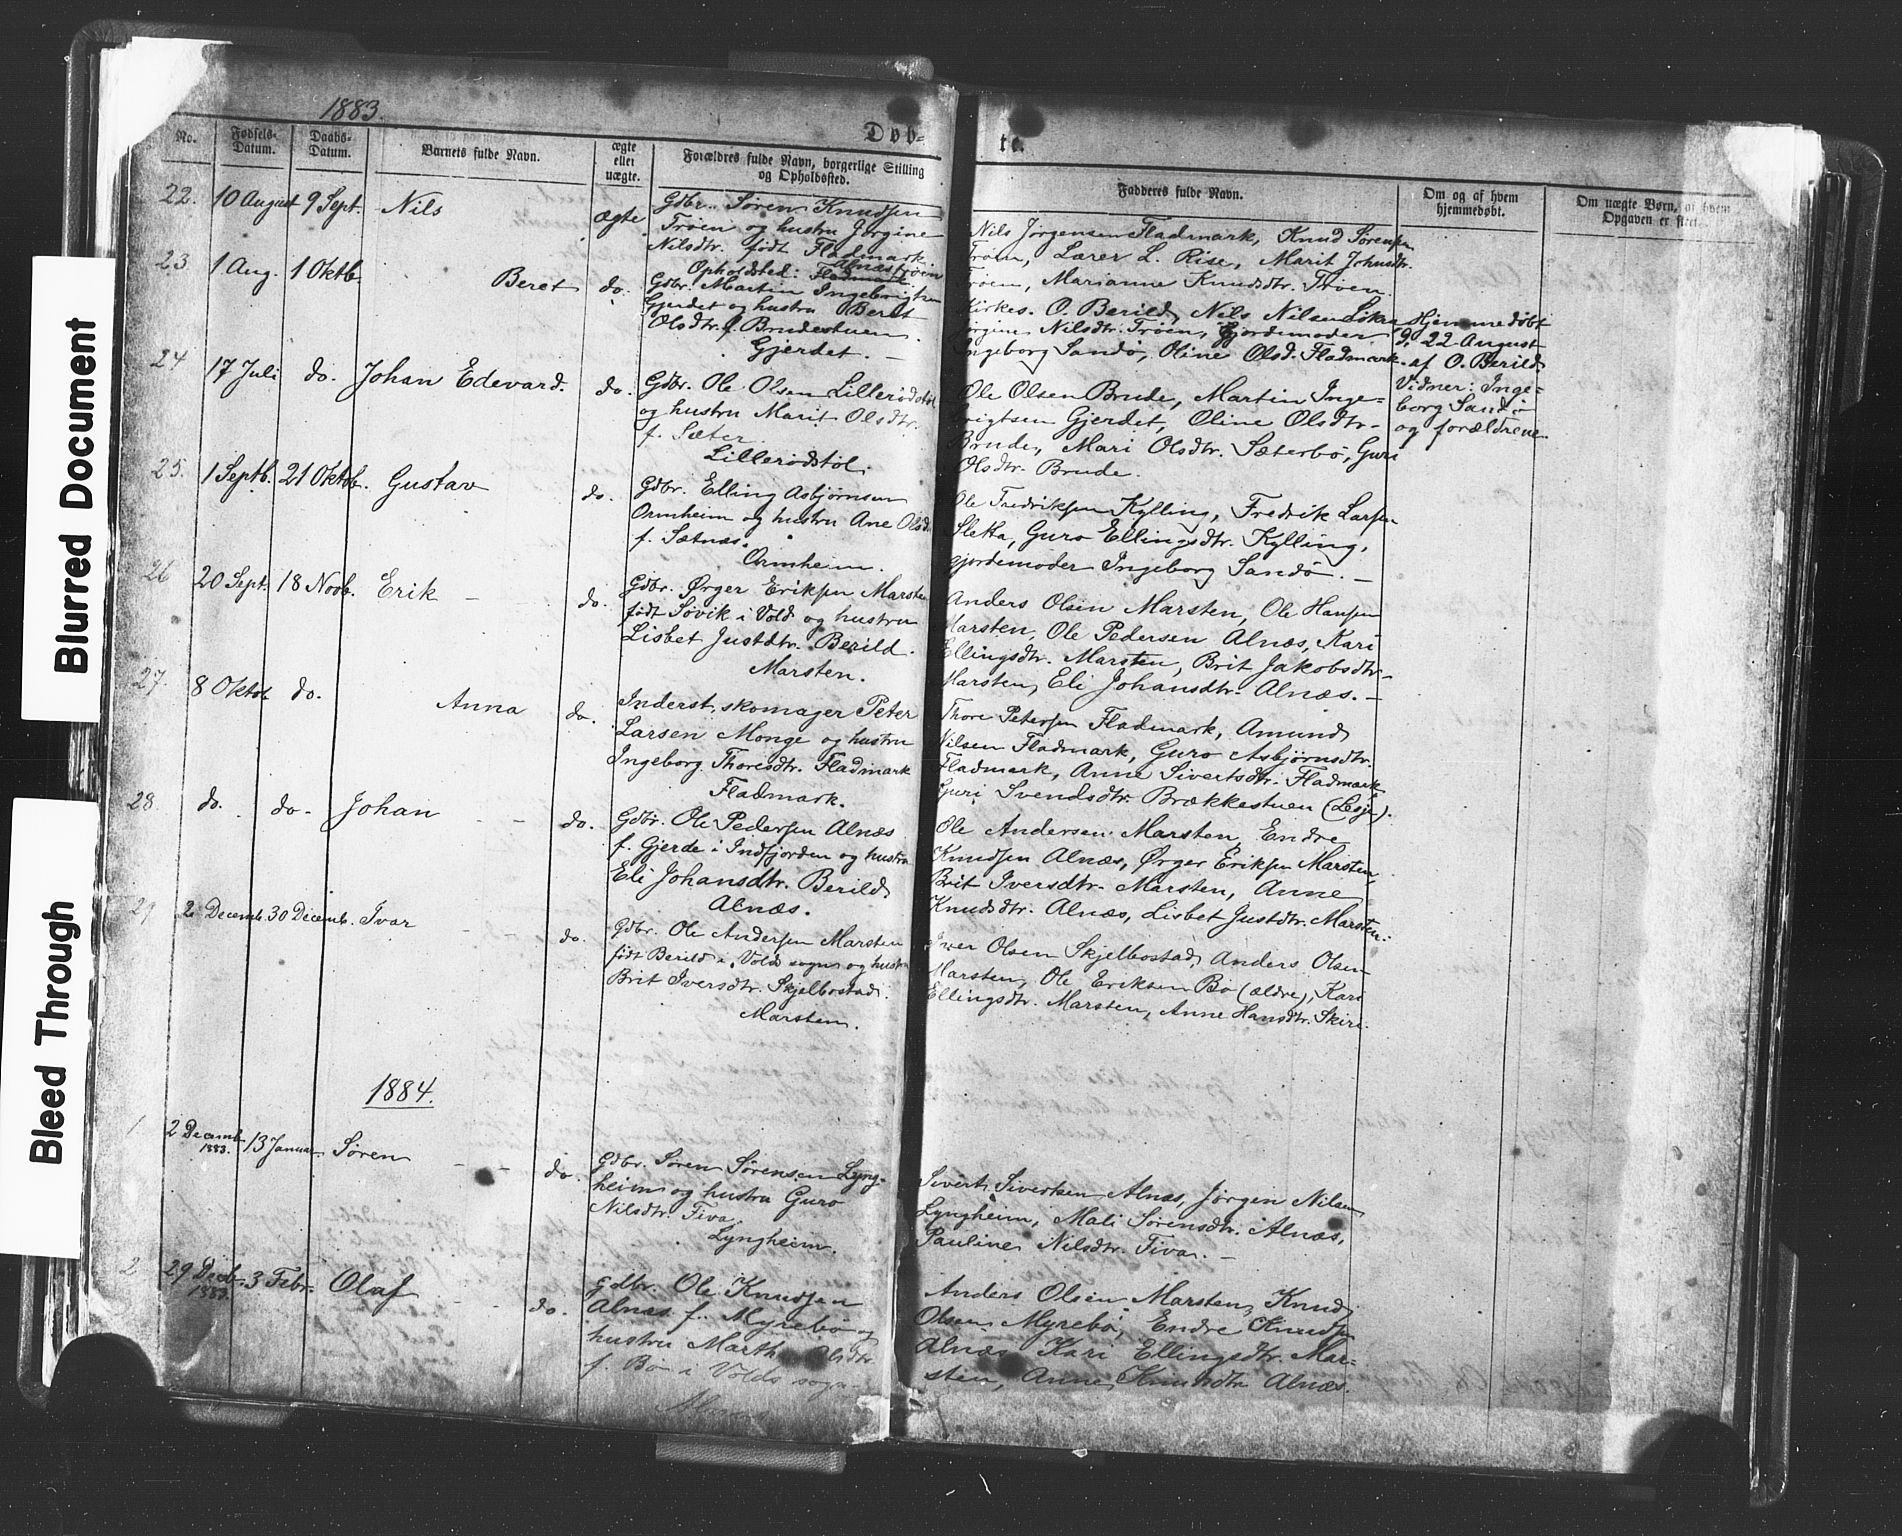 Blurred Document
Bleed Through
1883.
Døb-
te.
No.
Fødsels-
Datum.
Daabs-
Datum.
Barnets fulde Navn.
ægte
eller
uægte.
Forældres fulde Navn, borgerlige Stilling
og Opholdssted.
Fadderes fulde Navn.
Om og af hvem
hjemmedøbt.
Om uægte Børn, af hvem
Opgaven er sket.
22. 10 August 9 Sept. Nils ægte
Gdbr. Søren Knudsen
Trøen og hustru Jørgine
Nilsdtr. født Fladmark
Opholdsted: Fladmark Alnæstrøen
Nils Jørgensen Fladmark, Knud Sørensen
Trøen, Lærer L. Rise, Marit Johnsdtr.
Trøen, Marianne Knudsdtr. Trøen.
23 1 Aug. 1 Oktb. Beret do.
Gdbr. Martin Ingebrigtsen
Gjerdet og hustru Beret
Olsdtr. f. Brudestuen.
Gjerdet. -
Kirkes. O. Berild, Nils Nilsen
Jørgine Nilsdtr. Trøen, Gjordemoder
Ingeborg Sandø, Oline Olsd. Fladmark
Hjemmedøbt
d. 22 August
af O. Berild
Vidner: Inge-
borg Sandø
og forældrene.
24 17 Juli do. Johan Edevard. do.
Gdbr. Ole Olsen Lillerødstøl
og hustru Marit Olsdtr.
f. Sæter.
Lillerødstøl.
Ole Olsen Brude, Martin Inge-
brigtsen Gjerdet, Oline Olsdtr.
Brude, Mari Olsdtr. Sæterbø, Guri
Olsdtr. Brude.
25. 1 Septb. 21 Oktob. Gustav do.
Gdbr. Elling Asbjørnsen
Ormheim og hustru Ane Olsd.
f. Sætnæs.
Ormheim.
Ole Fredriksen Kylling, Fredrik Larsen
Sletta, Guro Ellingsdtr. Kylling,
gjordemoder Ingeborg Sandø. -
26 20 Sept. 18 Novb. Erik - - do.
Gdbr. Ørger Eriksen Marsten
født Søvik i Vold og hustru
Lisbet Justdtr. Berild.
Marsten.
Anders Olsen Marsten, Ole Hansen
Marsten, Ole Pedersen Alnæs, Kari
Ellingsdtr. Marsten, Brit Jakobsdtr.
Marsten, Eli Johansdtr. Alnæs. -
27. 8 Oktob do. Anna do.
Inderst, skomager Peter
Larsen Monge og hustru
Ingeborg Thoresdtr. Fladmark
Fladmark.
Thore Petersen Fladmark, Amund
Nilsen Fladmark, Guro Asbjørnsdtr.
Fladmark, Anne Sivertsdtr. Fladmark
Guri Svendsdtr. Brækkestuen (Lesje).
28. do. do. Johan - - do.
Gdbr. Ole Pedersen Alnæs
f. Gjerde i Indfjorden og hustru
Eli Johansdtr. Berild
Alnæs.
Ole Andersen Marsten, Endre
Knudsen Alnæs, Ørger Eriksen Marsten,
Brit Iversdtr. Marsten, Anne
Knudsdtr. Alnæs, Lisbet Justdtr. Marsten.
29 2 Decemb. 30 Decemb. Ivar - do.
Gdbr. Ole Andersen Marsten
født Berild i Volds sogn og hustru
Brit Iversdtr. Skjelbostad.
Marsten.
Iver Olsen Skjelbostad, Anders Olsen
Marsten, Ole Eriksen Bø (ældre), Kari
Ellingsdtr. Marsten, Anne Hansdtr. Skiri.
1884.
1 2 Decemb. 1883. 13 Januar Søren - - do.
Gdbr. Søren Sørensen Lyng-
heim og hustru Guro
Nilsdtr. Tiva.
Lyngheim.
Sivert Sivertsen Alnæs, Jørgen Nilsen
Lyngheim, Mali Sørensdtr. Alnæs,
Pauline Nilsdtr. Tiva. -
2 29 Decb. 1883. 3 Febr. Olaf - - do.
Gdbr. Ole Knudsen
Alnæs f. Myrebø og
hustru Marth Olsdtr
f. Bø i Volds sogn
Alnæs
Anders Olsen Marsten, Knud
Olsen Myrebø, Endre Knudsen
Alnæs Kari Ellingsdtr. Mar-
sten, Anne Knudsdtr Alnæs.